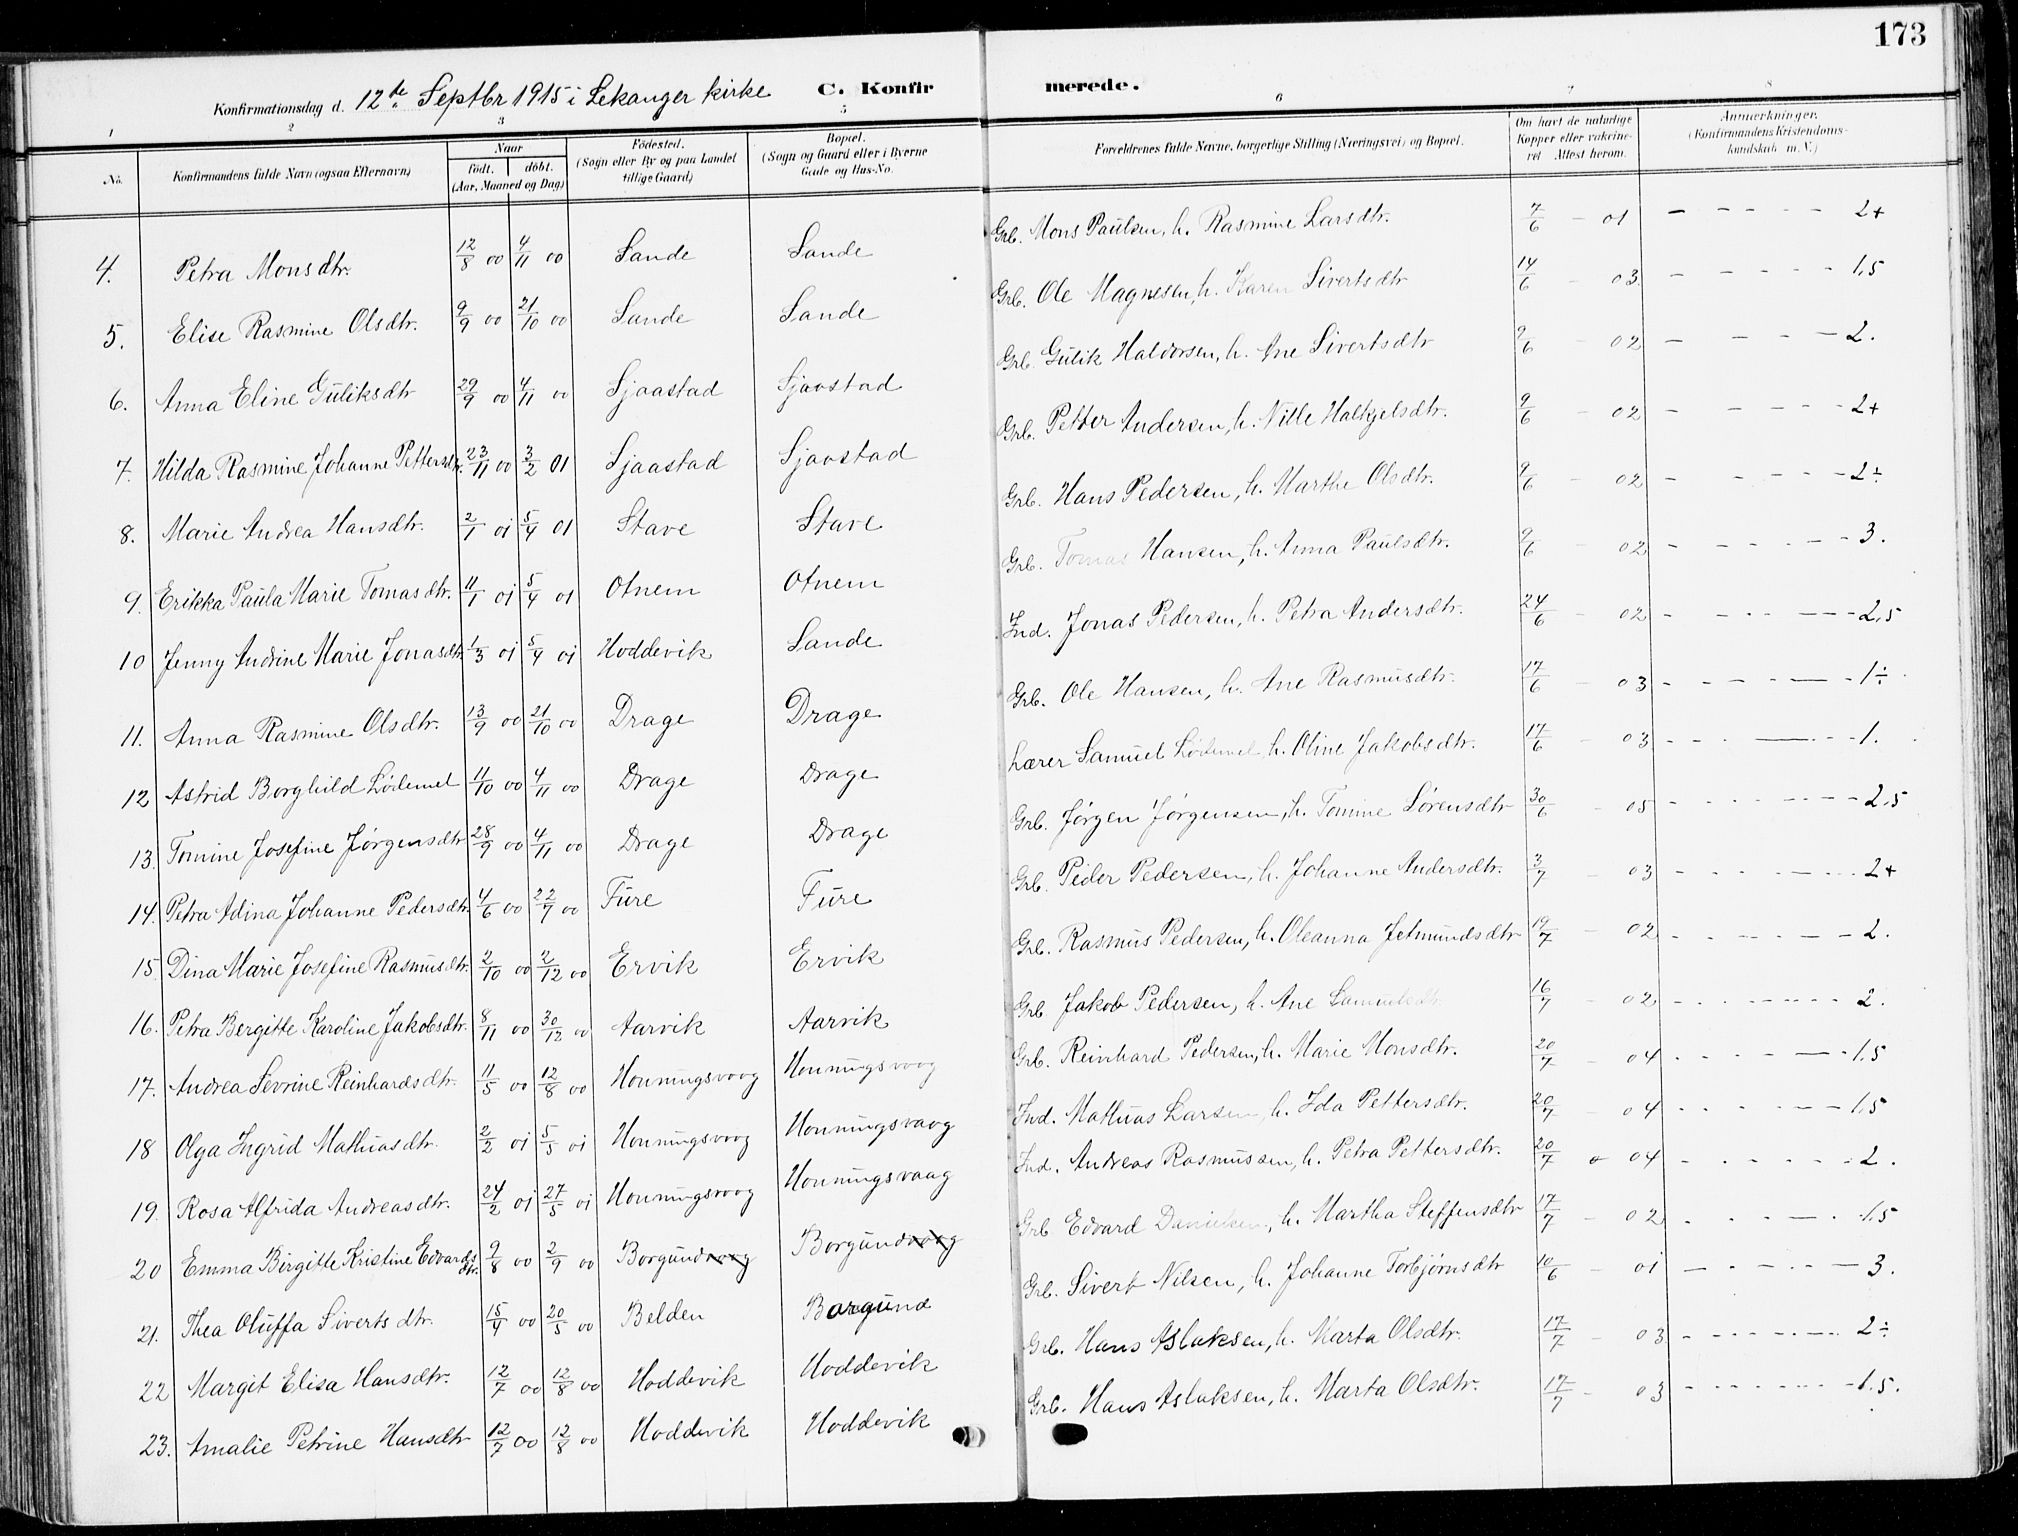 173
Konfirmationsdag d. 12te Septbr 1915 i Lekanger kirke C. Konfirmerede.
1 2 3 5 6 7 8
No. Konfirmandens fulde Navn (ogsaa Efternavn) Naar født. døbt. (Aar, Maaned og Dag) Fødested. (Sogn eller By og paa Landet tillige Gaard) Bopæl. (Sogn og Gaard eller i Byerne Gade og Hus-No. Forældrenes fulde Navne, borgerlige Stilling (Næringsvei) og Bopæl. Om havt de naturlige Kopper eller vakcineret Attest herom. Anmærkninger. (Konfirmandens Kristendomskundskab m. V.)
4. Petra Monsdtr. 12/8 00 4/11 00 Sande Sande Grb. Mons Paulsen, h. Rasmine Larsdtr. 7/6 - 01 - - - - - 2+
5. Elise Rasmine Olsdtr. 9/9 00 21/10 00 Sande Sande Grb. Ole Magnesen, h. Karen Sivertsdtr 14/6 - 03 - - - - - 1,5
6. Anna Eline Guliksdtr 29/9 00 4/11 00 Sjaastad Sjaastad Grb. Gulik Haldorsen, h. Ane Sivertsdtr 9/6 - 02 - - - - 2.
7. Hilda Rasmine Johanne Pettersdtr. 23/11 00 3/2 01 Sjaastad Sjaastad Grb. Petter Andersen, h. Nille Halkjelsdtr. 9/6 - 02 - - - - - 2+
8. Marie Andrea Hansdtr. 2/1 01 5/4 01 Stave Stave Grb. Hans Pedersen, h. Marthe Olsdtr. 9/6 - 02 - - - - - 2÷
9. Erikka Paula Marie Tomasdtr. 11/1 01 5/4 01 Otnem Otnem Grb. Tomas Hansen, h. Anna Paulsdtr. 9/6 - 02 - - - - - 3.
10 Jenny Andrine Marie Jonasdtr 1/3 01 5/4 01 Hoddevik Sande Ind. Jonas Pedersen, h. Petra Andersdtr. 24/6 - 02 - - - - - 2,5
11. Anna Rasmine Olsdtr. 13/9 00 21/10 00 Drage Drage Grb. Ole Hansen, h. Ane Rasmusdtr. 17/6 - 03 - - - - - 1÷
12 Astrid Borghild Lødemel 11/10 00 4/11 00 Drage Drage Lærer Samuel Lødemel h. Oline Jakobsdtr. 17/6 - 03 - - - - - 1.
13. Tomine Josefine Jørgensdtr 28/9 00 4/11 00 Drage Drage Grb. Jørgen Jørgensen, h. Tomine Sørensdtr 30/6 - 05 - - - - - 2,5
14. Petra Adina Johanne Pedersdtr. 4/6 00 22/7 00 Fure Fure Grb. Peder Pedersen, h. Johanne Andersdtr. 3/7 - 03 - - - - - 2+
15. Dina Marie Josefine Rasmusdtr. 2/10 00 2/12 00 Ervik Ervik Grb. Rasmus Pedersen, h. Oleanna Jetmundsdtr 19/7 - 02 - - - - - 2.
16. Petra Bergitte Karoline Jakobsdtr. 8/11 00 30/12 00 Aarvik Aarvik Grb Jakob Pedersen, h. Ane Samuelsdtr. 16/7 - 02 - - - - - 2.
17. Andrea Sevrine Reinhardsdtr. 11/5 00 12/8 00 Honningsvaag Honningsvaag Grb. Reinhard Pedersen, h. Marie Monsdtr. 20/7 - 04 - - - - - 1,5
18 Olga Ingrid Mathiasdtr. 2/2 01 5/5 01 Honningsvaag Honningsvaag Ind. Mathias Larsen, h. Ida Pettersdtr. 20/7 - 04 - - - - - 1,5
19. Rosa Alfrida Andreasdtr. 24/2 01 27/5 01 Honningsvaag Honningsvaag Ind. Andreas Rasmussen, h. Petra Pettersdtr. 20/7 - 04 - - - - - 2.
20 Emma Birgitte Kristine Edvardsdtr. 9/8 00 2/9 00 Borgundvaag Borgundvaag Grb Edvard Danielsen, h. Martha Steffensdtr 17/7 - 02 - - - - - 1,5
21. Thea Oluffa Sivertsdtr. 15/4 00 20/5 00 Belden Borgund Grb. Sivert Nilsen, h. Johanne Torbjørnsdtr 10/6 - 01 - - - - - 3.
22 Margit Elisa Hansdtr. 12/7 00 12/8 00 Hoddevik Hoddevik Grb. Hans Aslaksen, h. Marta Olsdtr. 17/7 - 03 - - - - - 2÷
23. Amalie Petrine Hansdtr 12/7 00 12/8 00 Hoddevik Hoddevik Grb. Hans Aslaksen, h. Marta Olsdtr. 17/7 - 03 - - - - - 1.5.